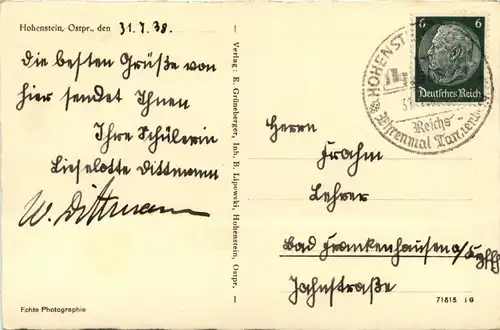 Hohenstein, Ostpr., den 31.7.38.
die besten Grüße von
hier sendet Ihnen
Ihre Schülerin
Lieselotte Dittmann
W. Dittmann
Echte Photographie
Verlag: E. Grüneberger, Inh. B. Lipowski, Hohenstein, Ostpr.
6 6
Deutsches Reich
HOHENST
Reichs-
Ehrenmal Tannenb
Herrn
Frahm
Lehrer
Bad Frankenhausen a/Kyffh
Jahnstraße
71815 IG